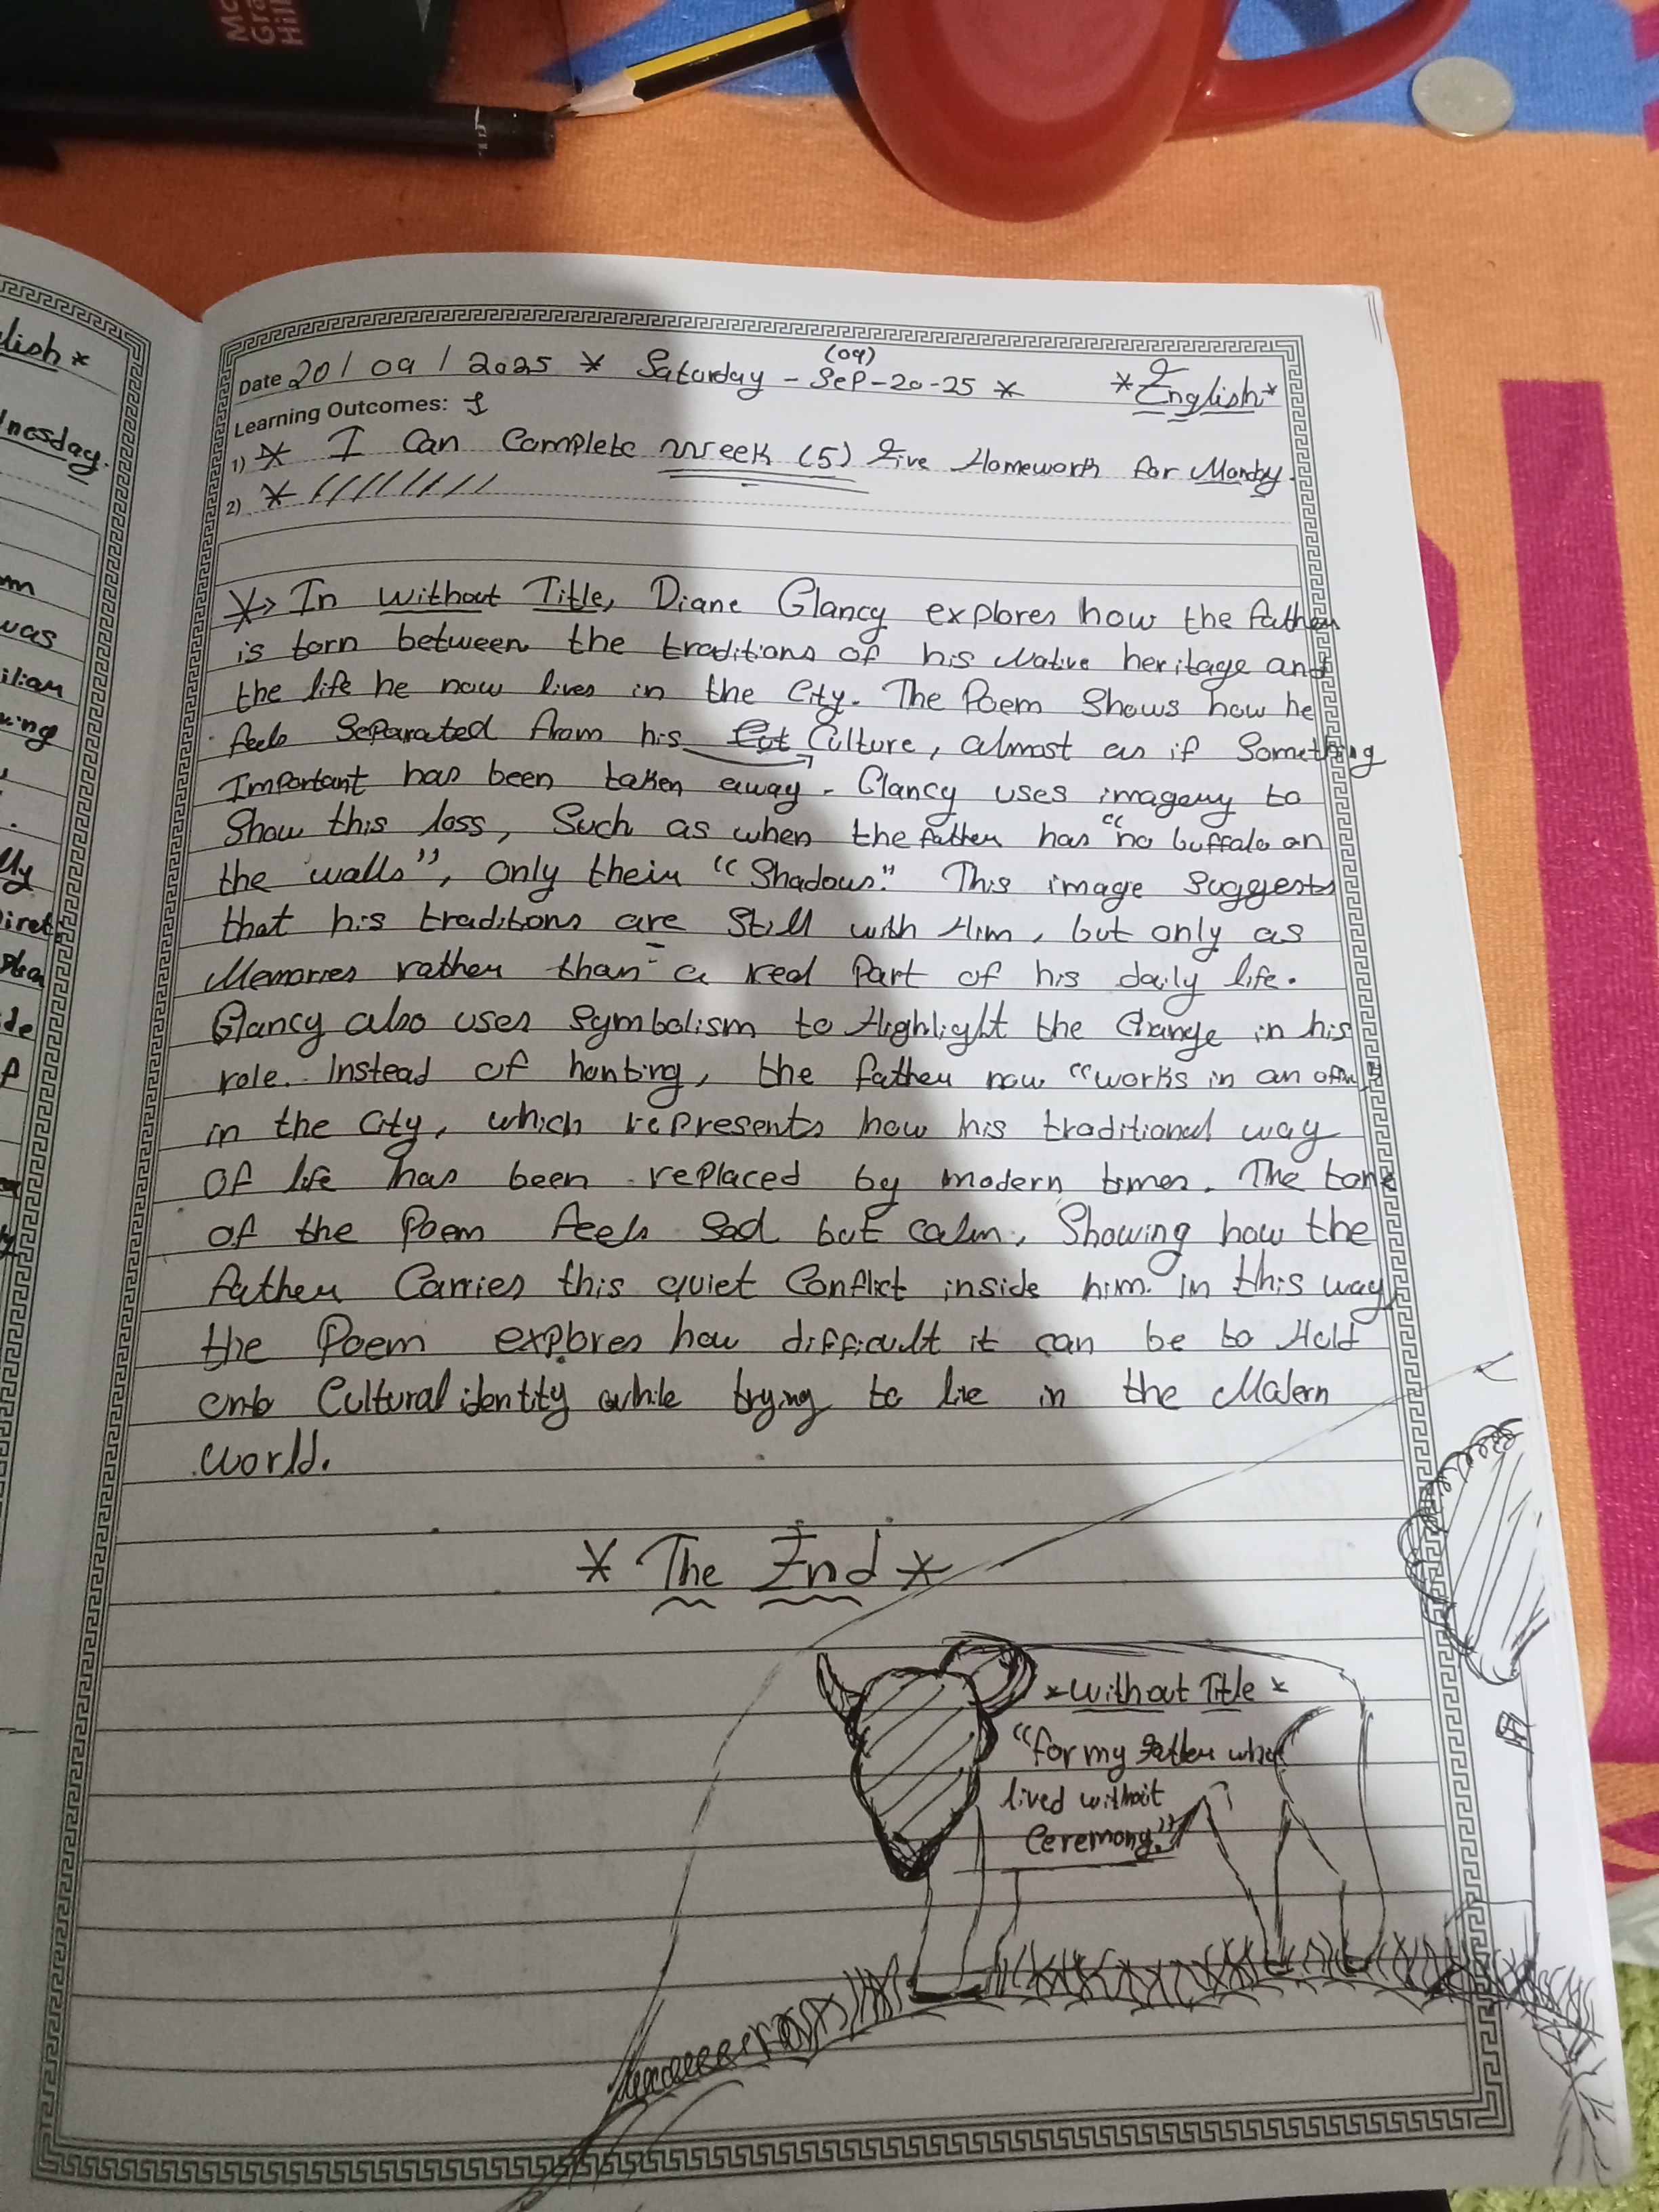 Mc
Gra
Hill
lish *
nesday.
m
was
iliam
king
lly
iret
de
f
Date 20 / 09 / 2025 * Saturday - SeP - 20 - 25 *
(09)
* English *
Learning Outcomes: 1
1) * I Can Complete Week (5) Five Homework for Monday.
2) *
In Without Title, Diane Glancy explores how the father
is torn between the traditions of his Native heritage and
the life he now lives in the City. The Poem Shows how he
feels Separated from his Cut Culture, almost as if Something
Important has been taken away. Glancy uses imagery to
Show this loss, Such as when the father has "no buffalo on
the walls", only their "Shadows." This image Suggests
that his traditions are Still with Him, but only as
Memories rather than a real Part of his daily life.
Glancy also uses Symbolism to Highlight the Change in his
role. Instead of hunting, the father now "works in an
in the City, which represents how his traditional way
Of life has been replaced by modern times. The tone
of the Poem feels Sad but calm, Showing how the
father Carries this quiet Conflict inside him. In this way,
the Poem explores how difficult it can be to Hold
onto Cultural identity while trying to lie in the Modern
World.
* The End *
* Without Title *
"for my father who
lived without
Ceremony."